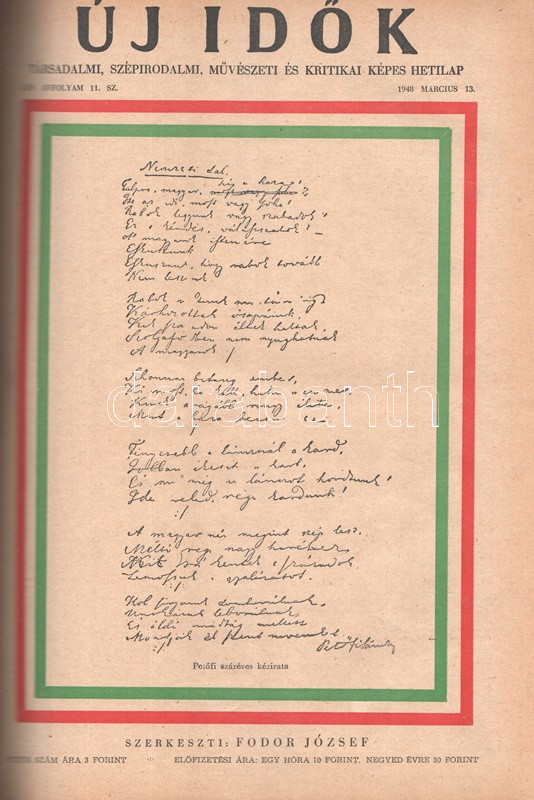 ÚJ IDŐK
TÁRSADALMI, SZÉPIRODALMI, MŰVÉSZETI ÉS KRITIKAI KÉPES HETILAP
ÉVFOLYAM 11. SZ. 1948 MÁRCIUS 13.
Nemzeti dal.
hí a haza!
Talpra, magyar, most vagy soha!
Itt az idő, most vagy soha!
Rabok legyünk vagy szabadok?
Ez a kérdés, válasszatok! –
A magyarok istenére
Esküszünk
Esküszünk, hogy rabok tovább
Nem leszünk
Rabok voltunk mostanáig
Kárhozottak ősapáink,
Kik szabadon éltek haltak,
Szolgaföldben nem nyughatnak
A magyarok
Sehonnai bitang ember,
Ki most, ha kell, halni nem mer,
Kinek drágább rongy élete,
Mint a haza becsülete
Fényesebb a láncnál a kard,
Jobban ékesíti a kart,
És mi mégis láncot hordtunk!
Ide veled, régi kardunk!
A magyar név megint szép lesz,
Méltó régi nagy hiréhez
Mit rá kentek a századok
Lemossuk a gyalázatot.
Hol sírjaink domborulnak,
Unokáink leborulnak
És áldó imádság mellett
Mondják el szent neveinket
Petőfi Sándor
Petőfi százéves kézirata
SZERKESZTI: FODOR JÓZSEF
SZÁM ÁRA 3 FORINT ELŐFIZETÉSI ÁRA: EGY HÓRA 10 FORINT, NEGYED ÉVRE 30 FORINT
darabanth